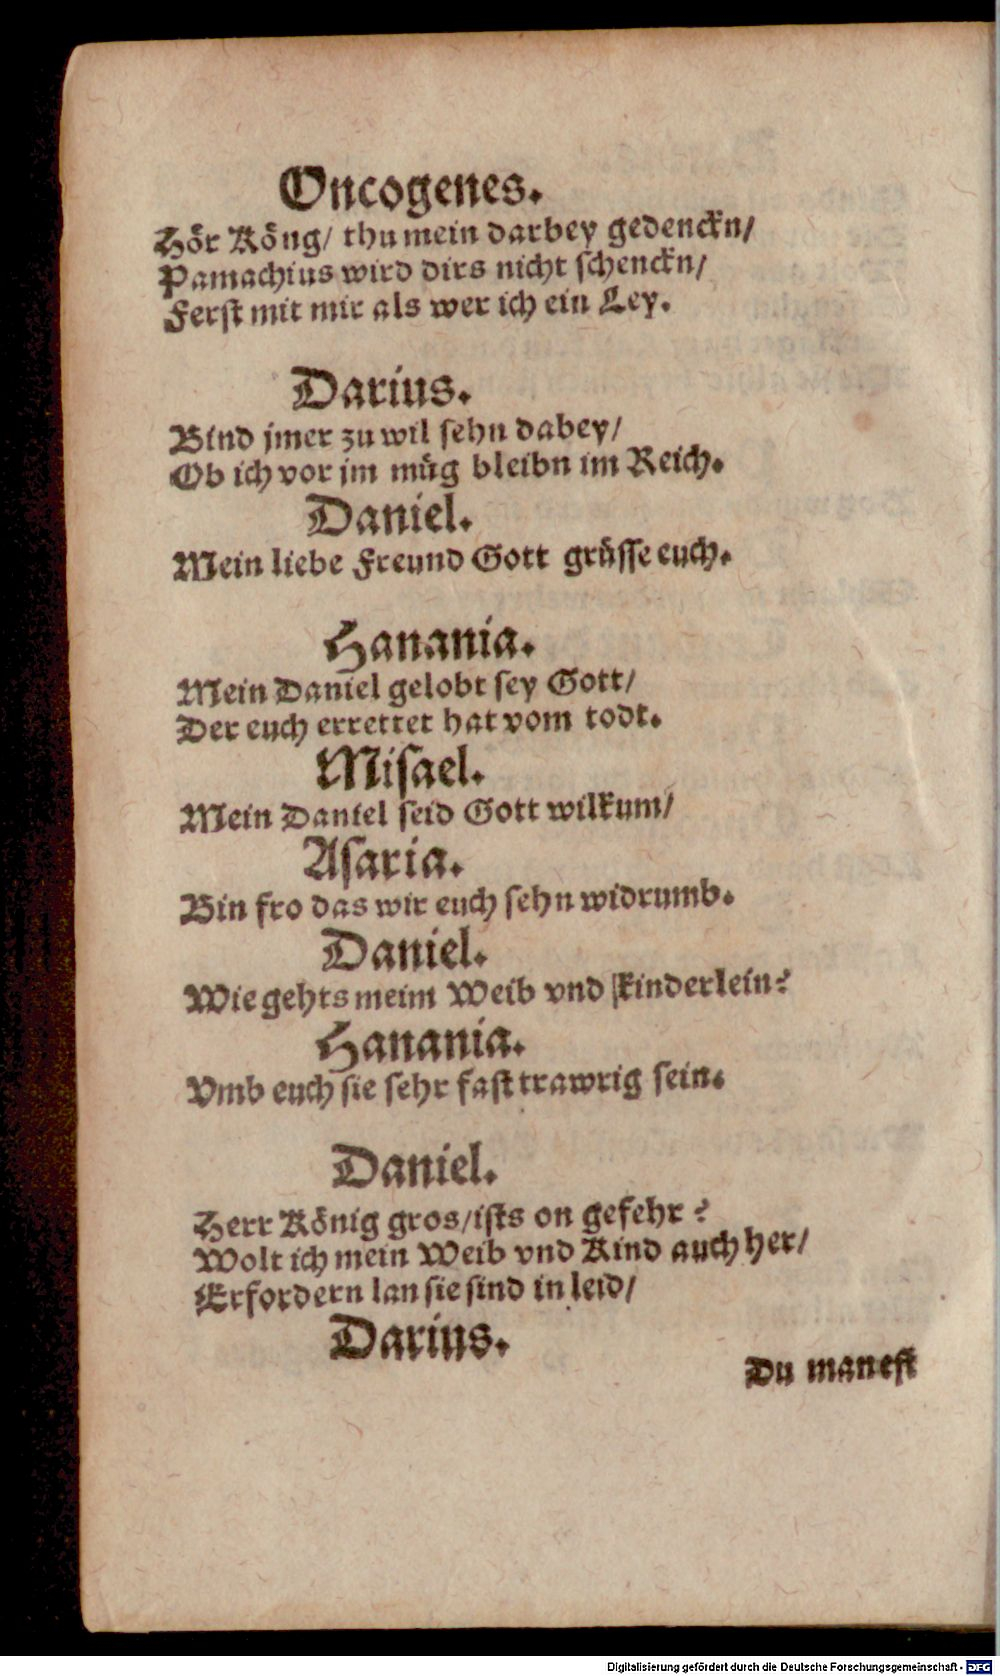 Oncogenes.
Hör Köng/ thu mein darbey gedenckn/
Pamachius wird dirs nicht schenckn/
Ferst mit mir als wer ich ein Ley.
Darius.
Bind jmer zu wil sehn dabey/
Ob ich vor jm müg bleibn im Reich.
Daniel.
Mein liebe Freund Gott grüsse euch.
Hanania.
Mein Daniel gelobt sey Gott/
Der euch errettet hat vom todt.
Misael.
Mein Daniel seid Gott wilkum/
Asaria.
Bin fro das wir euch sehn widrumb.
Daniel.
Wie gehts meim Weib vnd kinderlein?
Hanania.
Vmb euch sie sehr fast trawrig sein.
Daniel.
Herr König gros/ ists on gefehr?
Wolt ich mein Weib vnd Kind auch her/
Erfordern lan sie sind in leid/
Darius.
Du manest
Digitalisierung gefördert durch die Deutsche Forschungsgemeinschaft - DFG